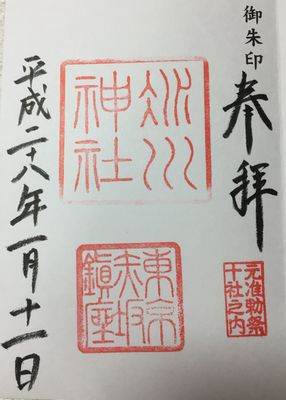 御朱印
奉拝
元准勅祭
十社之内
冰川
神社
東京
赤坂
鎭座
平成二十八年一月十一日